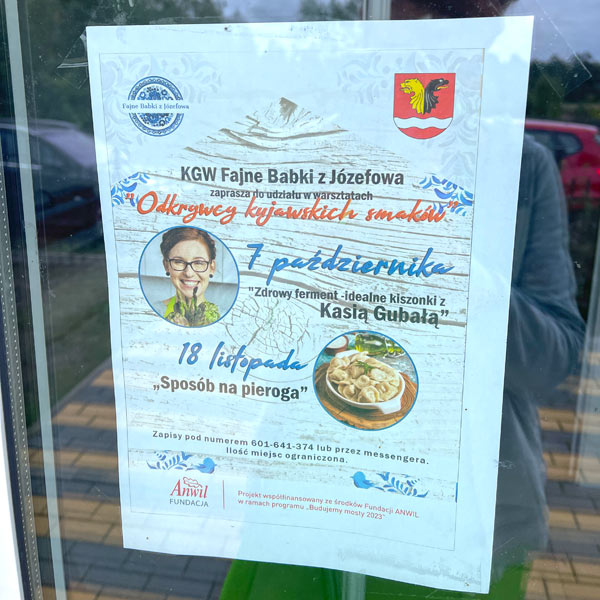 Fajne Babki z Józefowa
KGW Fajne Babki z Józefowa
zaprasza do udziału w warsztatach
"Odkrywcy kujawskich smaków"
7 października
"Zdrowy ferment -idealne kiszonki z
Kasią Gubałą”
18 listopada
„Sposób na pieroga”
Zapisy pod numerem 601-641-374 lub przez messengera.
Ilość miejsc ograniczona.
Anwil
FUNDACJA
Projekt współfinansowany ze środków Fundacji ANWIL
w ramach programu „Budujemy mosty 2023”